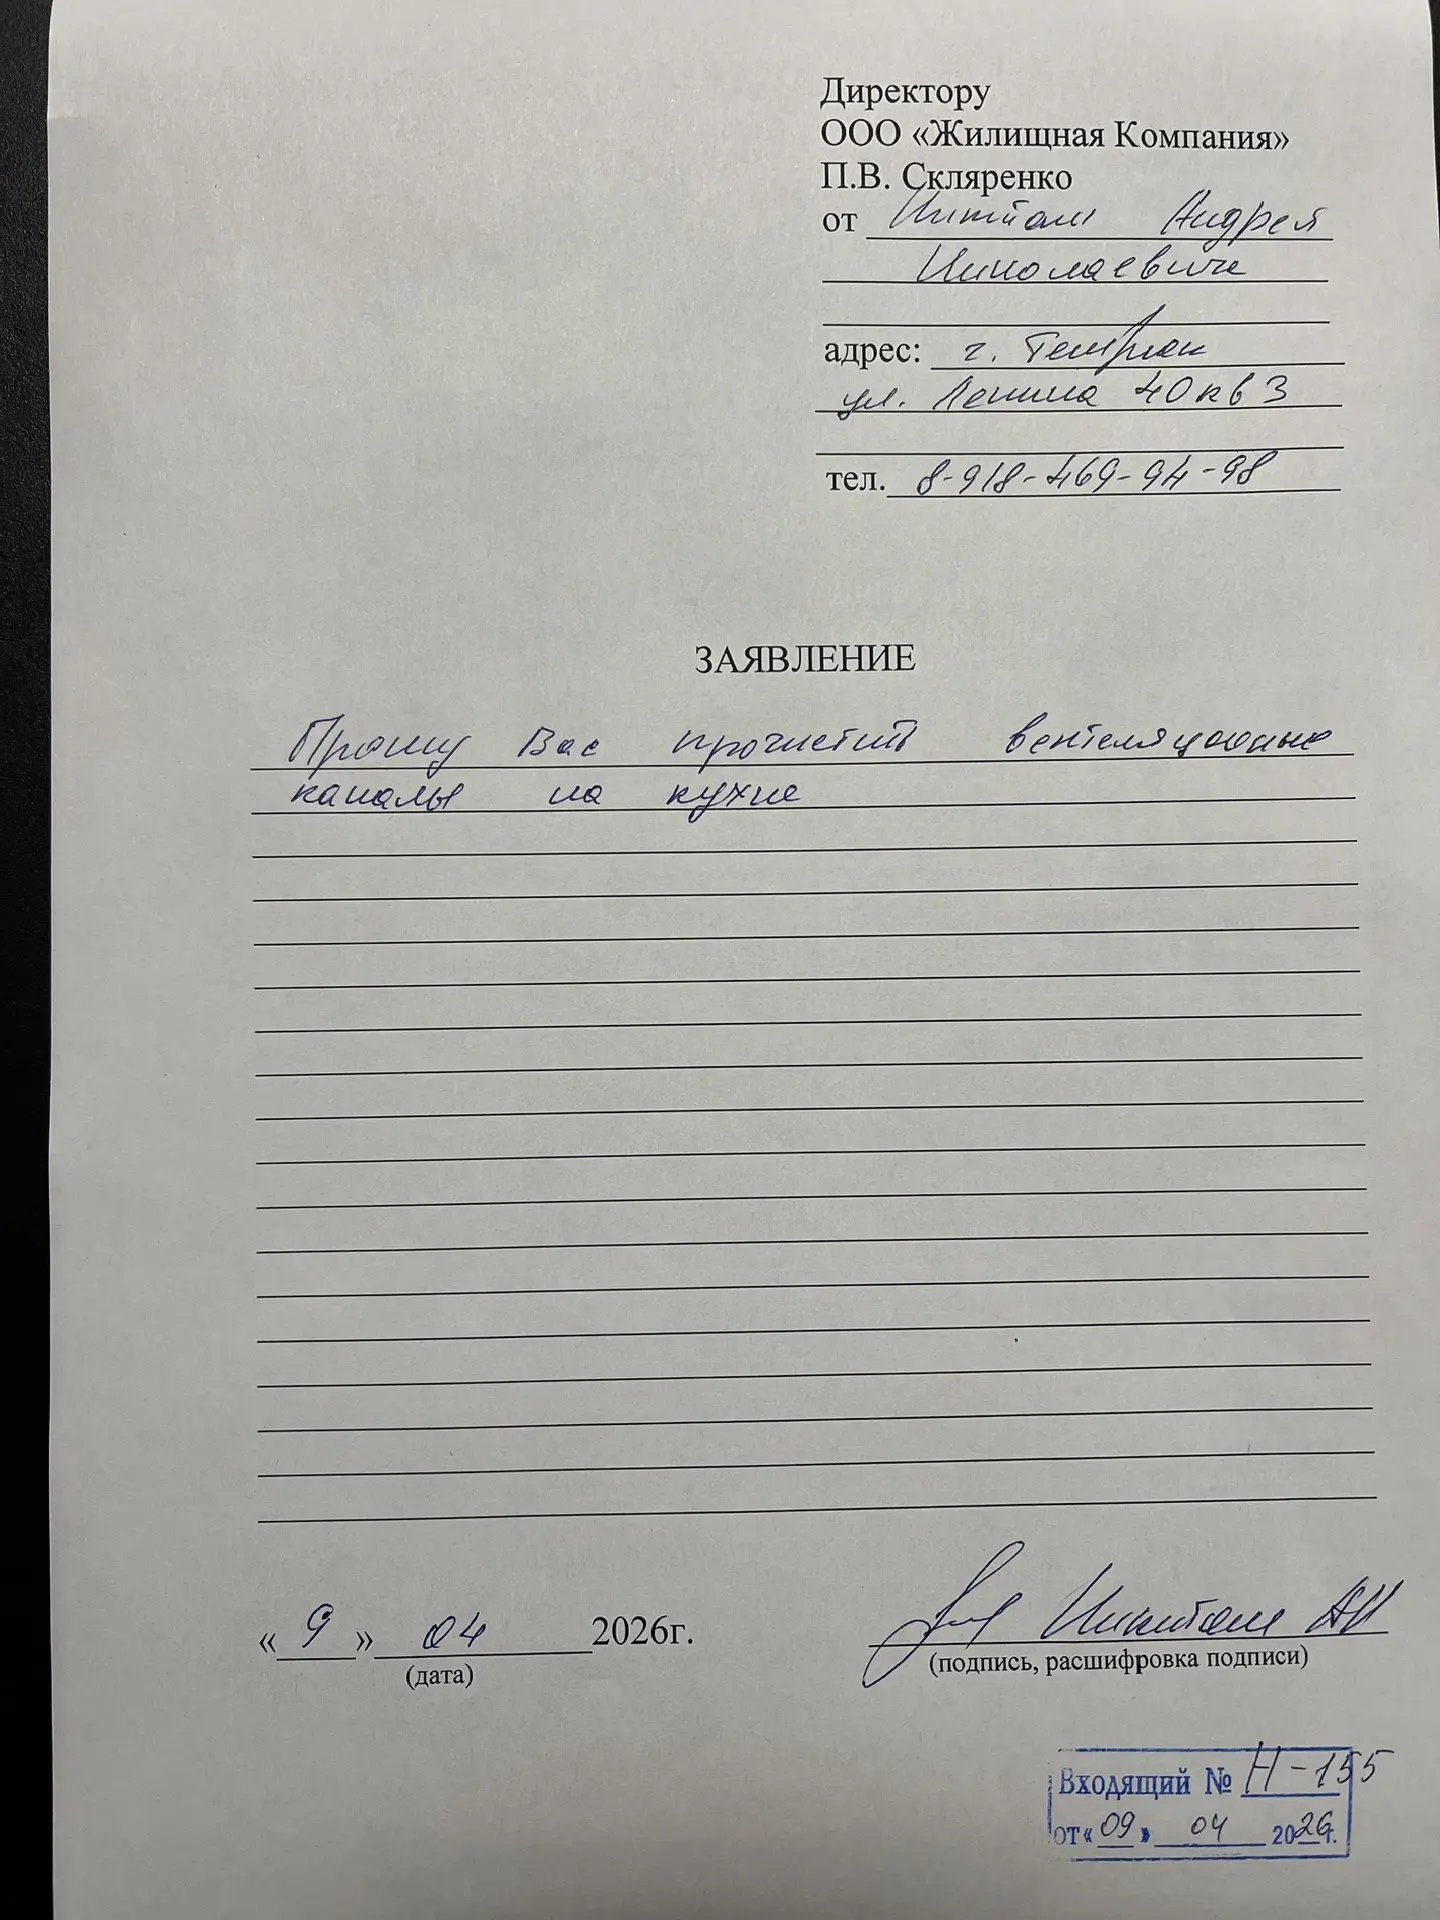 Директору
ООО «Жилищная Компания»
П.В. Скляренко
от Андрея
Николаевича
адрес: г. Темрюк
ул. Ленина 40 кв 3
тел. 8-918-469-94-98
ЗАЯВЛЕНИЕ
Прошу Вас прочистить вентеляционные
каналы на кухне
«9» 04 2026г.
(дата)
(подпись, расшифровка подписи)
Входящий № Н-155
от «09» 04 2026г.